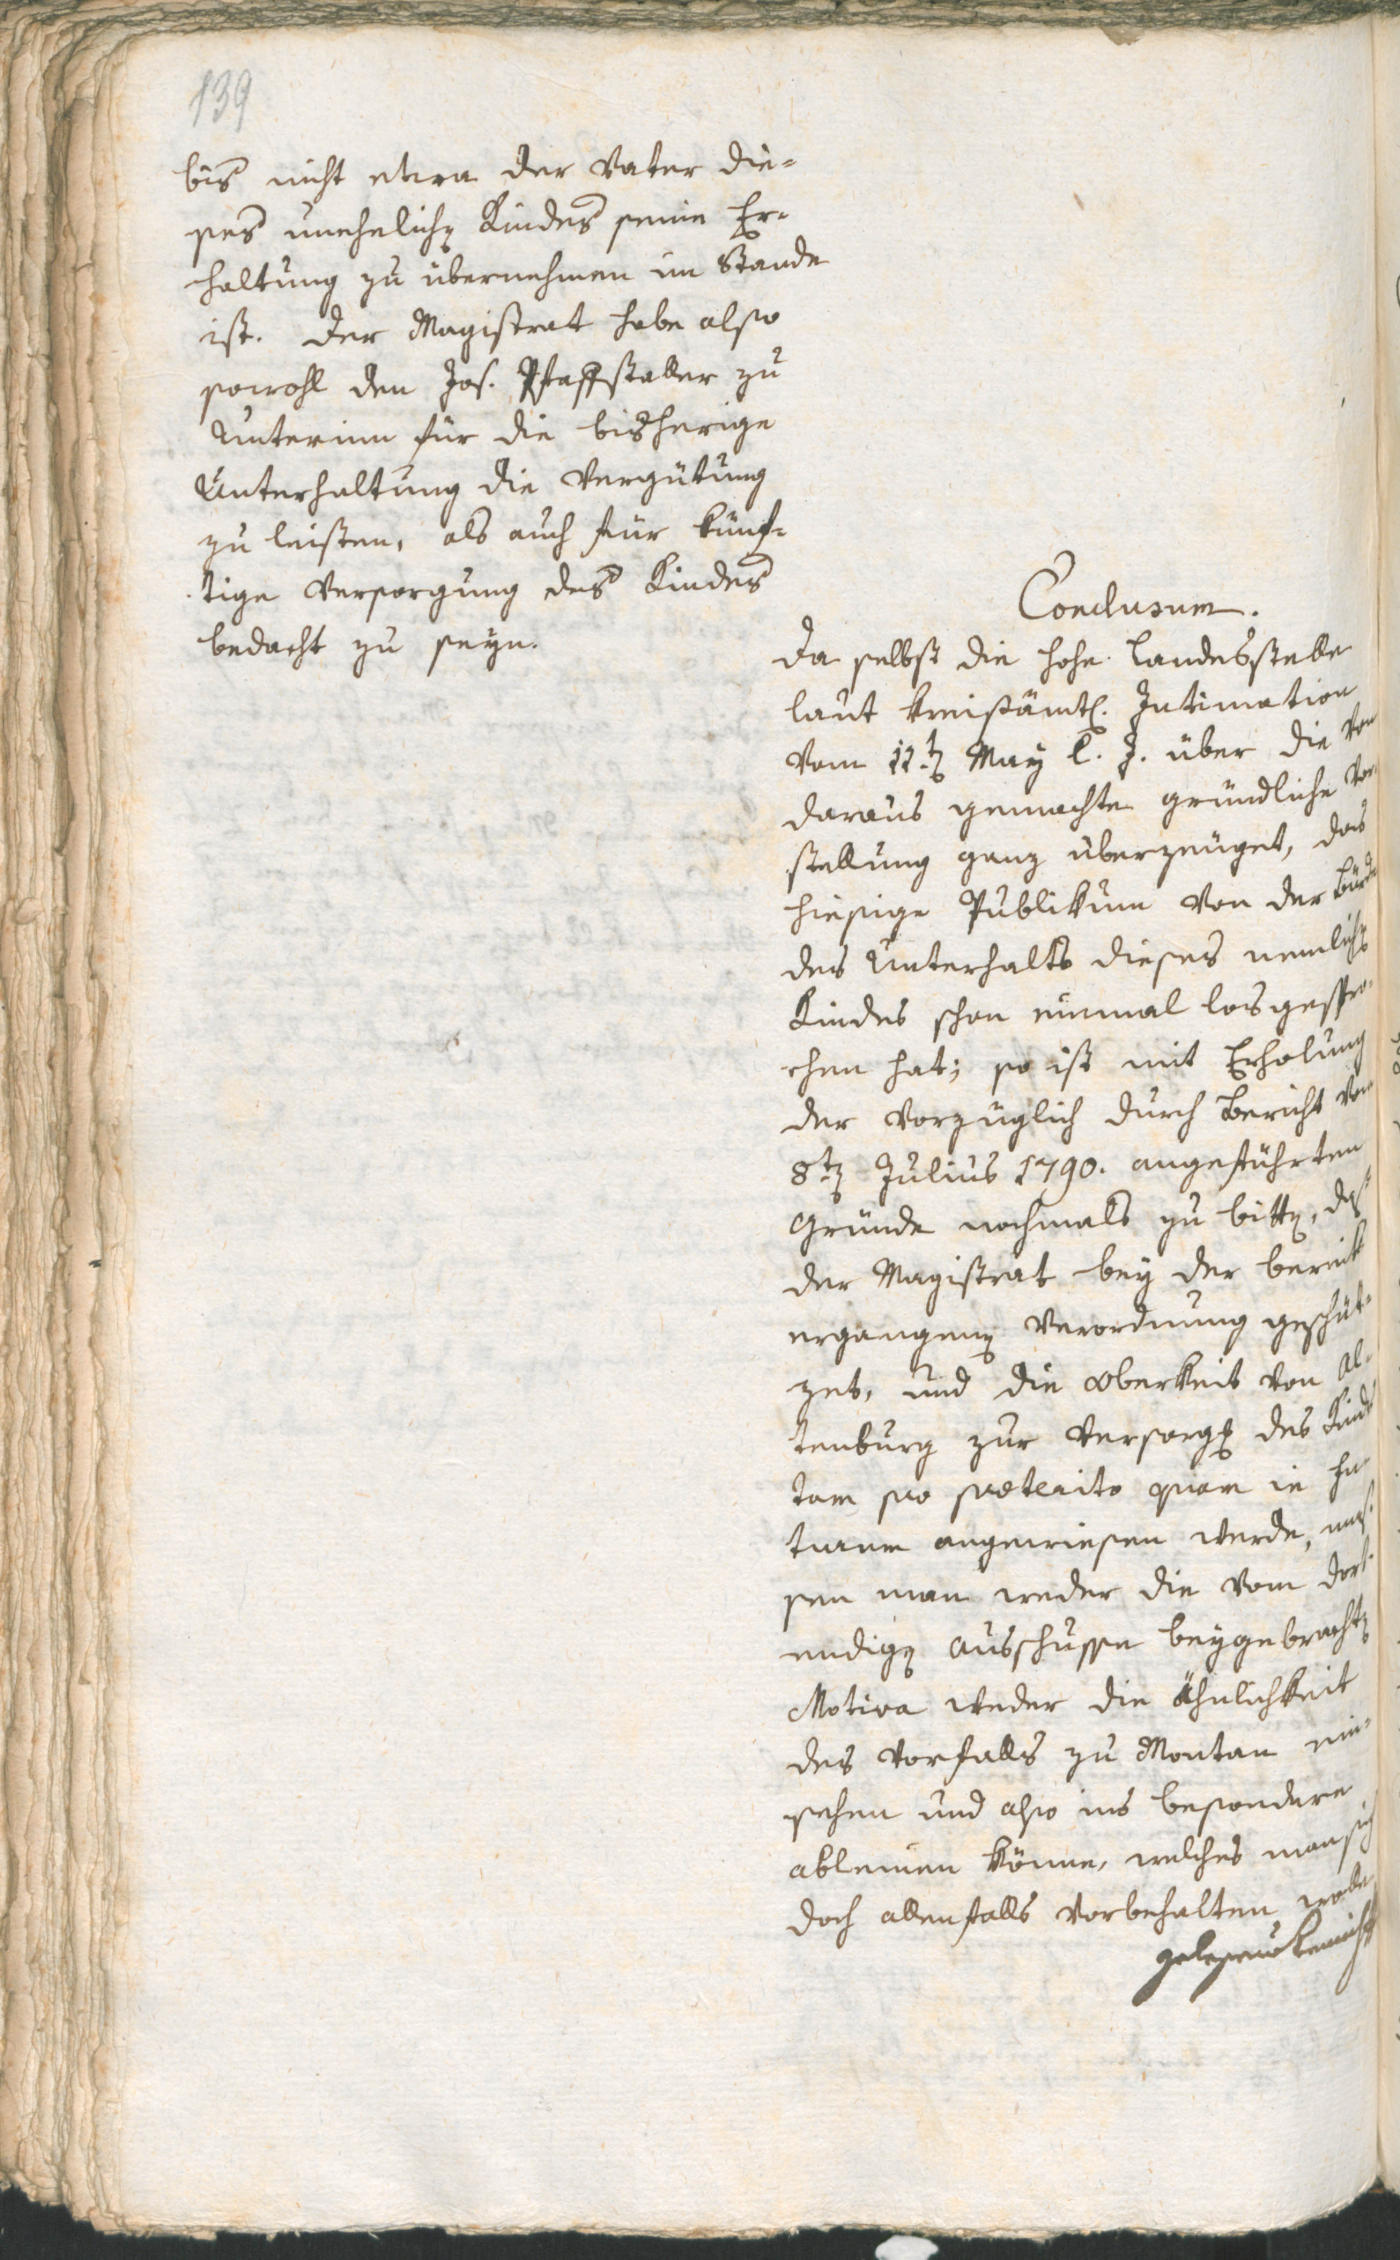 139
bis nicht etwa der Vater die-
ses unehelichen Kindes seine Er-
haltung zu übernehmen im Stande
ist. Der Magistrat habe also
sowohl den Jos. Pfaffstaller zu
Unterinn für die bisherige
Unterhaltung die Vergütung
zu leisten, als auch für künf-
tige Versorgung des Kindes
bedacht zu seyn.
Conclusum.
Da selbst die hohe Landesstelle
laut kreisämtl. Intimation
vom 11ten May l. J. über die von
daraus gemachte gründliche Vor-
stellung ganz überzeuget, das
hiesige Publikum von der Bürde
des Unterhalts dieses nemlichen
Kindes schon einmal losgespro-
chen hat; so ist mit Erholung
der vorzüglich durch Bericht vom
8ten Julius 1790. angeführten
Gründe nochmals zu bitten, daß
der Magistrat bey der bereits
ergangenen Verordnung geschüt-
zet, und die Oberkeit von Al-
tenburg zur Versorgung des Kindes
tam pro praeterito quam in fu-
turum angewiesen werde, mas-
sen man weder die vom dort-
endigen Ausschusse beygebrachten
Motiva weder die Ähnlichkeit
des Vorfalls zu Montan ein-
sehen und also ins besondere
ableinen könne, welches man sich
doch allenfalls vorbehalten wolle